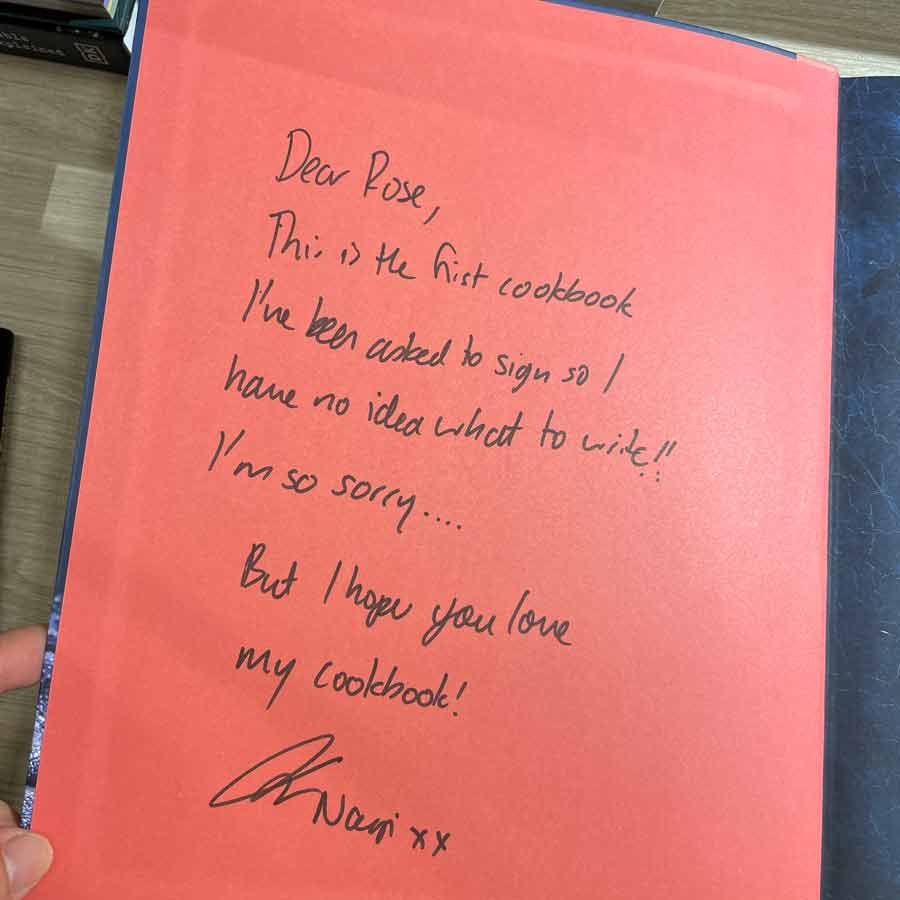 Dear Rose,
This is the first cookbook
I've been asked to sign so I
have no idea what to write!!
I'm so sorry....
But I hope you love
my cookbook!
Nagi xx
DK